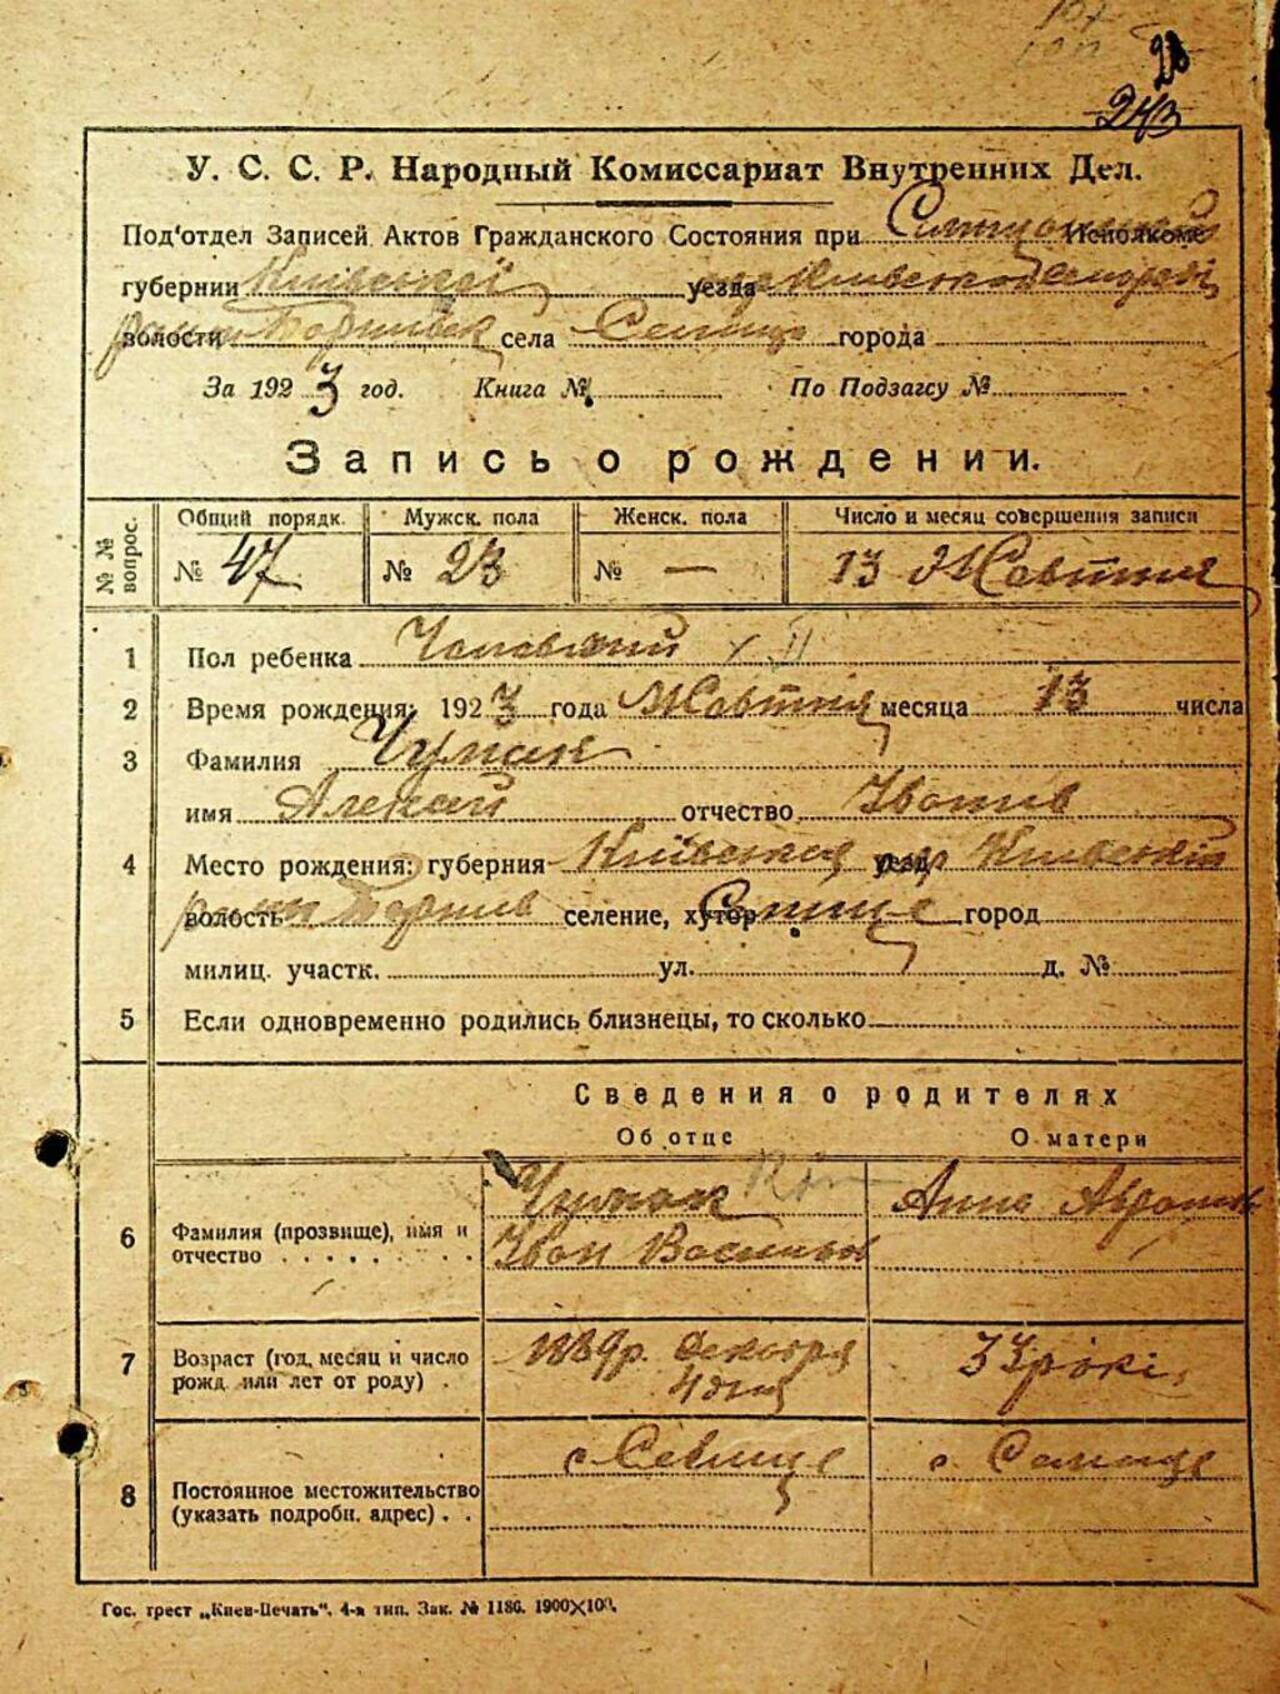 243
У. С. С. Р. Народный Комиссариат Внутренних Дел.
Под'отдел Записей Актов Гражданского Состояния при Исполкоме
губернии Київської уезда
волости села Селище города
За 1923 год. Книга № По Подзагсу №
Запись о рождении.
№ № вопрос. Общий порядк. Мужск. пола Женск. пола Число и месяц совершения записи
№ 47 № 23 № — 13 Жовтня
1 Пол ребенка Чоловічий
2 Время рождения: 1923 года Жовтня месяца 13 числа
3 Фамилия Чумак
имя Алексей отчество Іванів
4 Место рождения: губерния Київська уезд
волость селение, хутор Селище город
милиц. участк. ул. д. №
5 Если одновременно родились близнецы, то сколько
Сведения о родителях
Об отце О матери
6 Фамилия (прозвище), имя и отчество Чумак Іван Анна
7 Возраст (год, месяц и число рожд. или лет от роду) 1889р. Декабря 4 дня 33 роки
8 Постоянное местожительство (указать подробн. адрес) с. Селище с. Селище
Гос. трест „Киев-Печать". 4-я тип. Зак. № 1186. 1900×100.